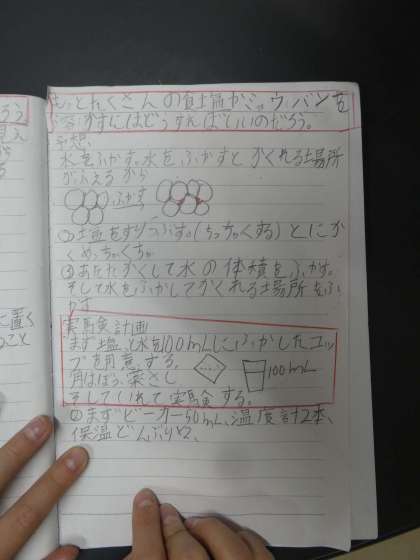 もっとたくさんの食塩やミョウバンを
とかすにはどうすればといいのだろう。
予想
水をふやす。水をふやすと かくれる場所
がふえるから
ふやす
①塩をすりつぶす。(ちっちゃくする) とにか
くめっちゃくちゃ
②あたたかくして水の体積をふやす。
そして水をふやしてかくれる場所をふ
やす
実験計画
まず塩と水を100mLにふやしたコッ
プを用意する。
100mL
そしていれて実験する。
②まずビーカー50mL、温度計2本、
保温どんぶり2、
ろう
に置く
こと